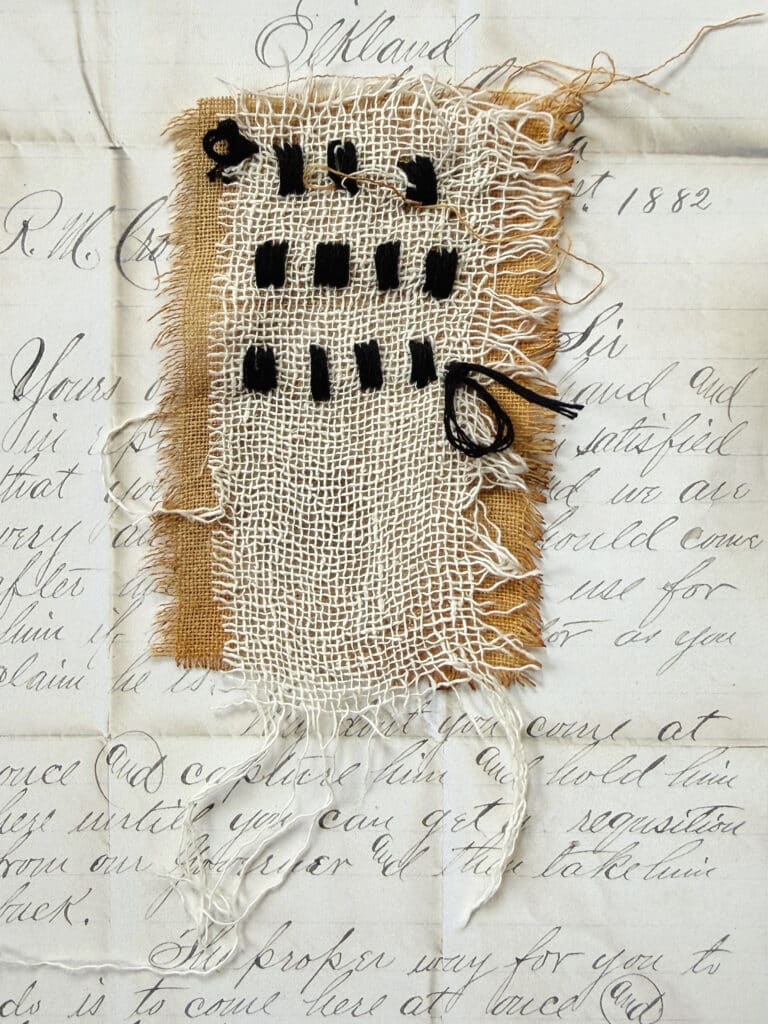 Elkland
st. 1882
R. M.
Sir
Yours hand and
in satisfied
that we are
very should come
after use for
him as you
claim he is
Why don't you come at
once and capture him and hold him
here untill you can get a requsition
from our Governer and then take him
back.
The proper way for you to
do is to come here at once and